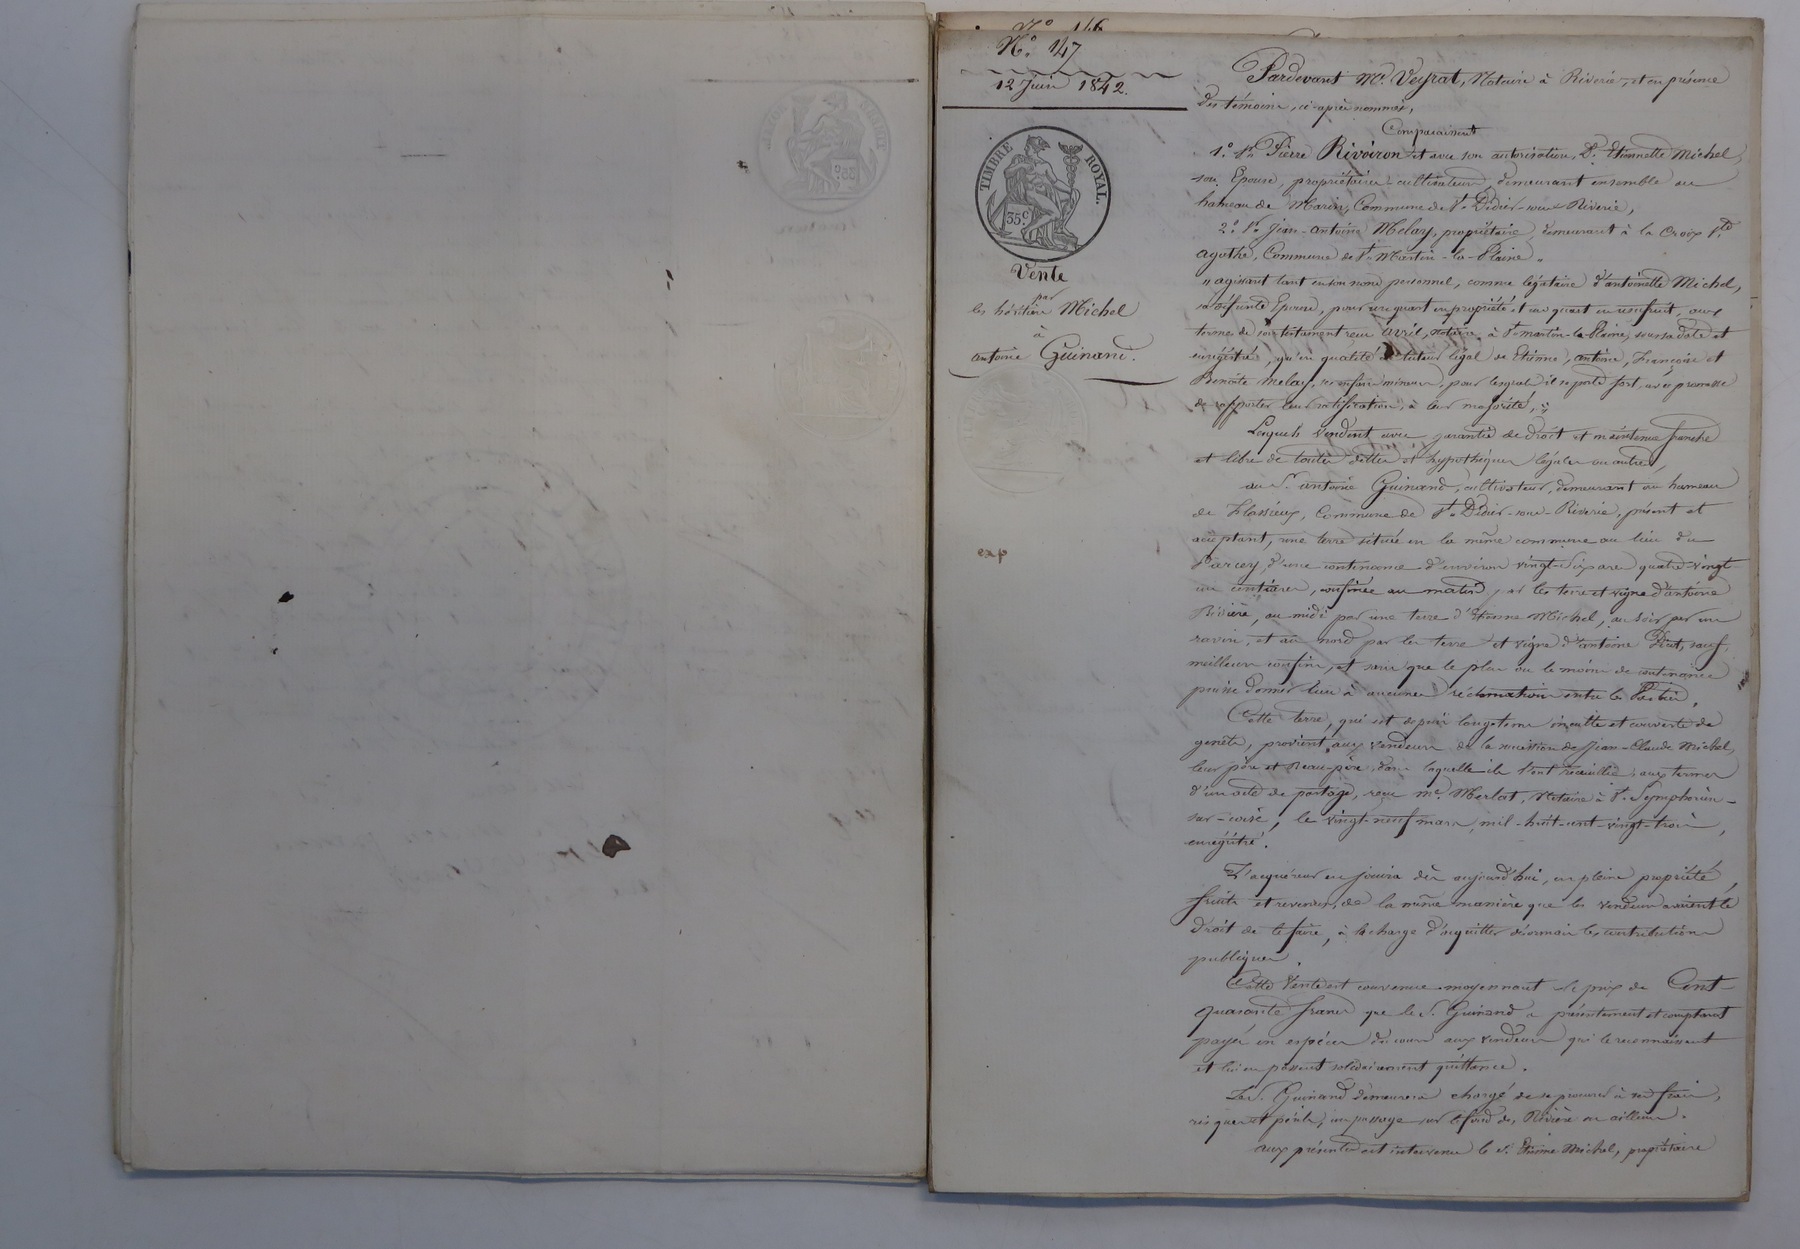 N.° 146
N.° 147
12 Juin 1842.
TIMBRE ROYAL.
35c
Vente
par
les héritiers Michel
à
antoine Guinand.
exp
Pardevant Me. Veyrat, Notaire à Riverie, et en présence
des témoins, ci-après nommés,
Comparaissent
1.° Sr. Pierre Rivoiron et avec son autorisation, De. Etiennette Michel,
son Epouse, propriétaires-cultivateurs, demeurant ensemble au
hameau de Morin, Commune de St. Didier-sous-Riverie,
2.° Sr. Jean-Antoine Melay, propriétaire, demeurant à la Croix Ste
agathe, Commune de St. Martin-la-Plaine.
"agissant tant en son nom personnel, comme légataire d'antoinette Michel,
sa défunte Epouse, pour un quart en propriété et un quart en usufruit, aux
termes de son testament reçu Avril, notaire à St martin-la-Plaine, sous sa date et
enrégistré, qu'en qualité de tuteur légal de Etienne, antoine, François et
Benoite Melay, ses enfans mineurs, pour lesquels il se porte fort, avec promesse
de rapporter leur ratification, à leur majorité,"
Lesquels vendent avec garantie de droit et maintenue franche
et libre de toutes dettes et hypothèques légales ou autres,
au Sr. antoine Guinand, cultivateur, demeurant au hameau
de Flassieux, Commune de St. Didier-sous-Riverie, présent et
acceptant, une terre située en la même commune au lieu du
Parcey, d'une contenance d'environ vingt-six ares quatre-vingt-
un centiares, confinée au matin par les terre et vigne d'antoine
Rivière, au midi par une terre d'Etienne Michel, au soir par un
ravin, et au nord par les terre et vigne d'antoine sauf
meilleurs confins, et sans que le plus ou le moins de contenance
puisse donner lieu à aucunes réclamation entre les Parties.
Cette terre, qui est depuis longtems inculte et couverte de
genêts, provient aux vendeurs de la succession de Jean-Claude Michel,
leur père et Beau-père, dans laquelle ils l'ont recueillie, aux termes
d'un acte de partage, reçu Me. Merlat, Notaire à St. Symphorien-
sur-coise, le vingt-neuf mars, mil-huit-cent-vingt-trois,
enrégistré.
L'acquéreur en jouira dès aujourd'hui, en pleine propriété,
fruits et revenus, de la même manière que les vendeurs avaient le
droit de le faire, à la charge d'acquitter désormais les contributions
publiques.
Cette Vente est convenue moyennant le prix de Cent-
quarante francs que le S. Guinand a présentement et comptant
payés en espèces du cours aux vendeurs qui le reconnaissent
et lui en passent solidairement quittance.
Le S. Guinand demeurera chargé de se procurer à ses frais,
risques et périls, un passage sur le fond des Rivière ou ailleurs.
aux présentes est intervenu le S. Etienne Michel, propriétaire